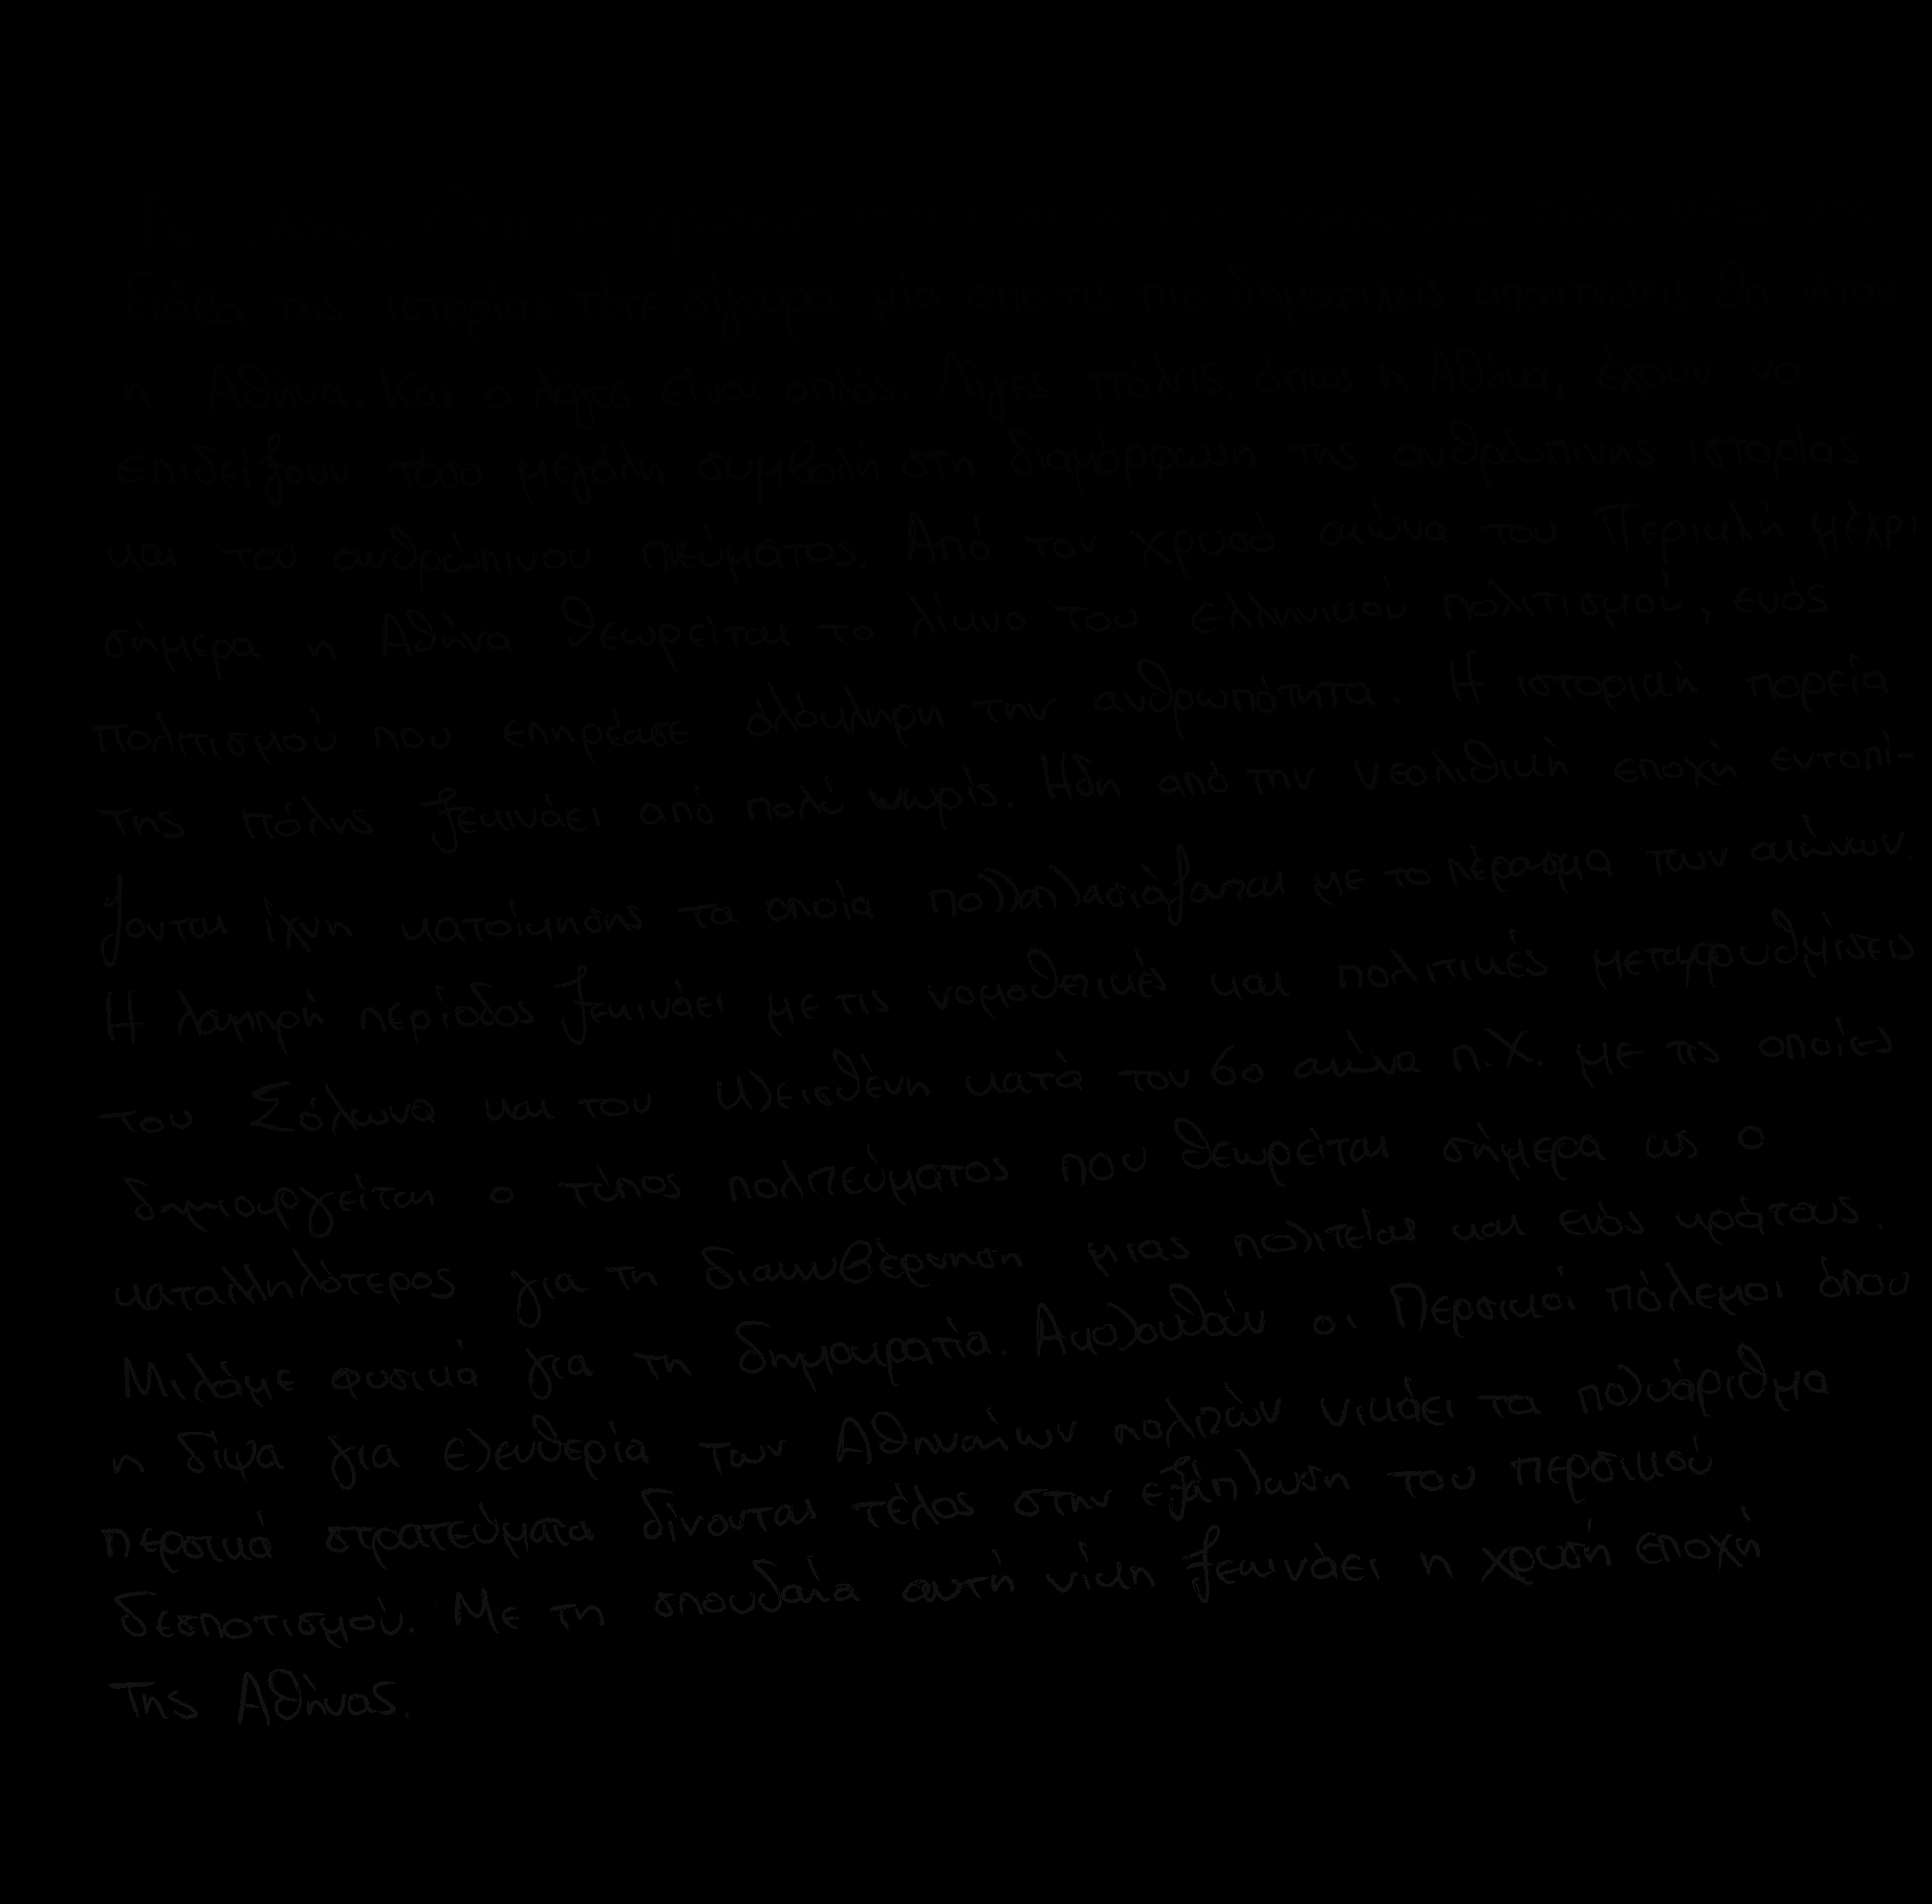 διάβα της ιστορίας τότε σίγουρα μία απο τις πιο δημοφιλείς απαντήσεις θα ήταν
η Αθήνα. Και ο λόγος είναι απλός. Λίγες πόλεις, όπως η Αθήνα, έχουν να
επιδείξουν τόσο μεγάλη συμβολή στη διαμόρφωση της ανθρώπινης ιστορίας
και του ανθρώπινου πνεύματος. Από τον χρυσό αιώνα του Περικλή μέχρι
σήμερα η Αθήνα θεωρείται το λίκνο του ελληνικού πολιτισμού, ενός
πολιτισμού που επηρέασε ολόκληρη την ανθρωπότητα. Η ιστορική πορεία
της πόλης ξεκινάει από πολύ νωρίς. Ηδη από την νεολιθική εποχή εντοπί-
ζονται ίχνη κατοίκησης τα οποία πολλαπλασιάζονται με το πέρασμα των αιώνων.
Η λαμπρή περίοδος ξεκινάει με τις νομοθετικές και πολιτικές μεταρρυθμίσεις
του Σόλωνα και του Κλεισθένη κατά τον 6ο αιώνα π.Χ. με τις οποίες
δημιουργείται ο τύπος πολιτεύματος που θεωρείται σήμερα ως ο
καταλληλότερος για τη διακυβέρνηση μιας πολιτείας και ενός κράτους.
Μιλάμε φυσικά για τη δημοκρατία. Ακολουθούν οι Περσικοί πόλεμοι όπου
η δίψα για ελευθερία των Αθηναίων πολιτών νικάει τα πολυάριθμα
περσικά στρατεύματα δίνονται τέλος στην εξάπλωση του περσικού
δεσποτισμού. Με τη σπουδαία αυτή νίκη ξεκινάει η χρυσή εποχή
της Αθήνας.